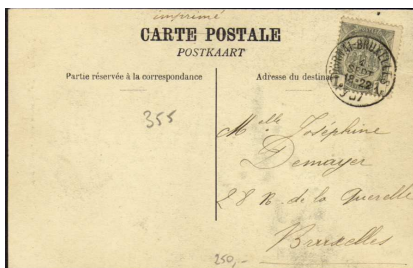 imprimé
CARTE POSTALE
POSTKAART
Partie réservée à la correspondance
Adresse du destinat
TOURNAI-BRUXELLES
SEPT
18-22
355
Melle Joséphine
Demayer
28 R. de la Querelle
Bruxelles
250,-